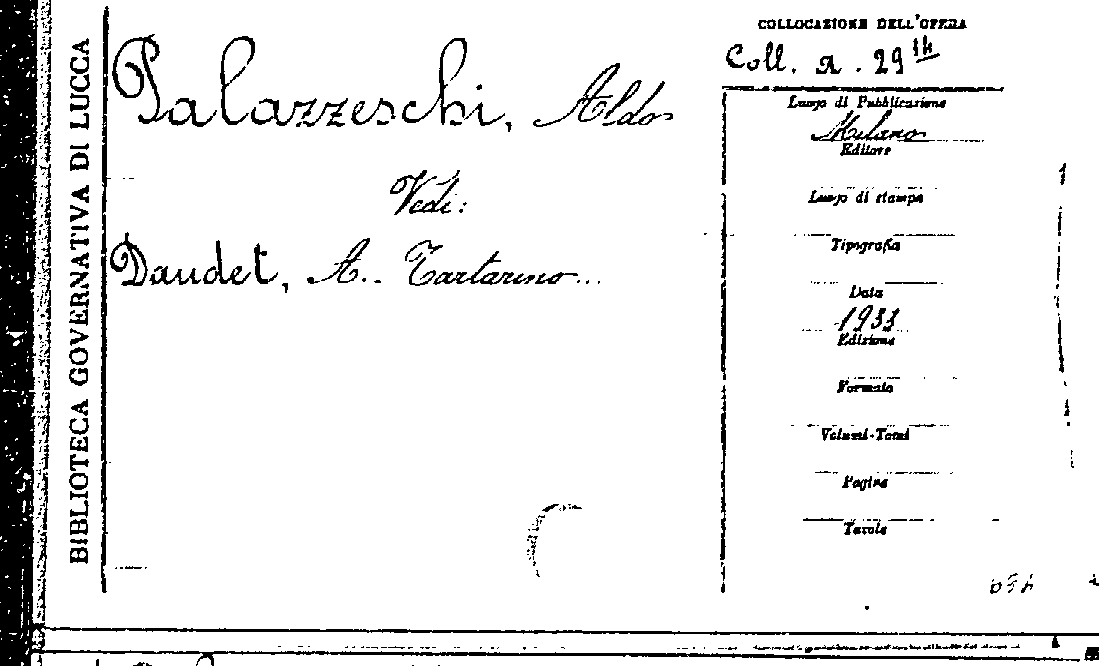 BIBLIOTECA GOVERNATIVA DI LUCCA
Palazzeschi, Aldo
Vedi:
Daudet, A. Tartarino...
COLLOCAZIONE DELL'OPERA
Coll. A. 29
Luogo di Pubblicazione
Milano
Editore
Luogo di stampa
Tipografia
Data
1933
Edizione
Formato
Volumi-Tomi
Pagine
Tavole